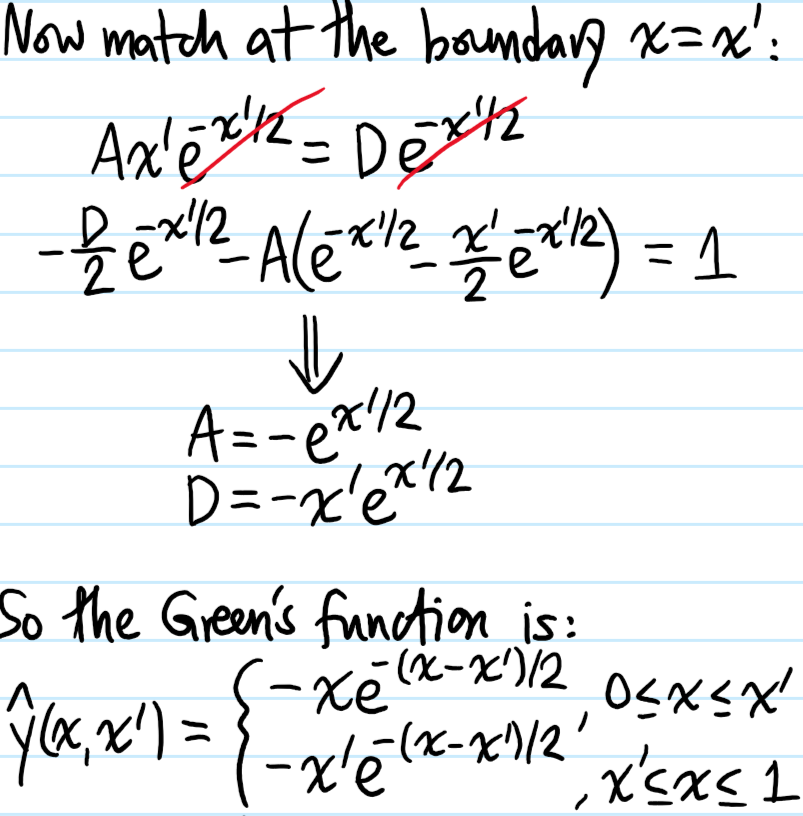 Now match at the boundary x=x':
Ax'e^{-x'/2} = De^{-x'/2}
-\frac{D}{2}e^{-x'/2} - A(e^{-x'/2} - \frac{x'}{2}e^{-x'/2}) = 1
⇓
A = -e^{x'/2}
D = -x'e^{x'/2}
So the Green's function is:
ŷ(x,x') = { -xe^{-(x-x')/2}, 0≤x≤x'
-x'e^{-(x-x')/2}, x'≤x≤1